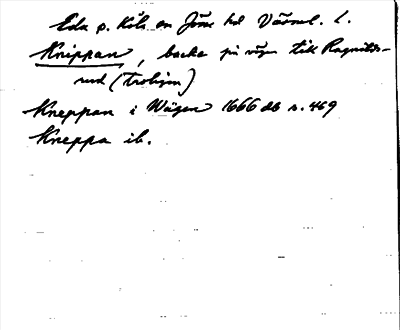 Eda p. Köla sn Jösse hd Värml. l.
Knippan, backe på vägen till Ragnilds-
rud (troligen)
Kneppan i Wägen 1666 db s. 469
Kneppa ib.